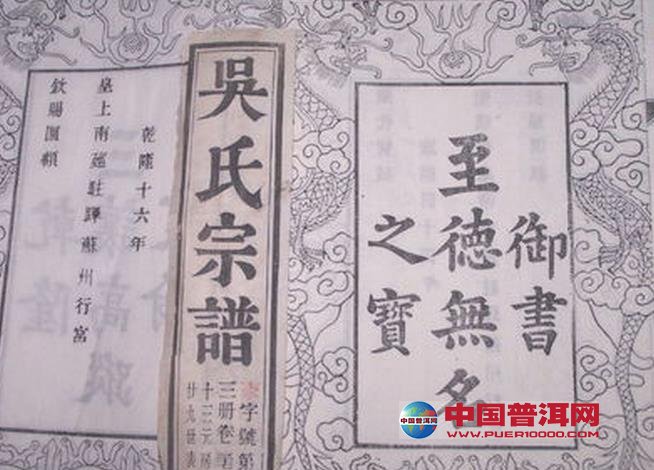 御書
至徳無名
之寶
吳氏宗譜
字號第
三册卷
十三
廿九世
乾隆十六年
皇上南廵駐蹕蘇州行宮
欽賜匾額
中国普洱网
WWW.PUER10000.COM